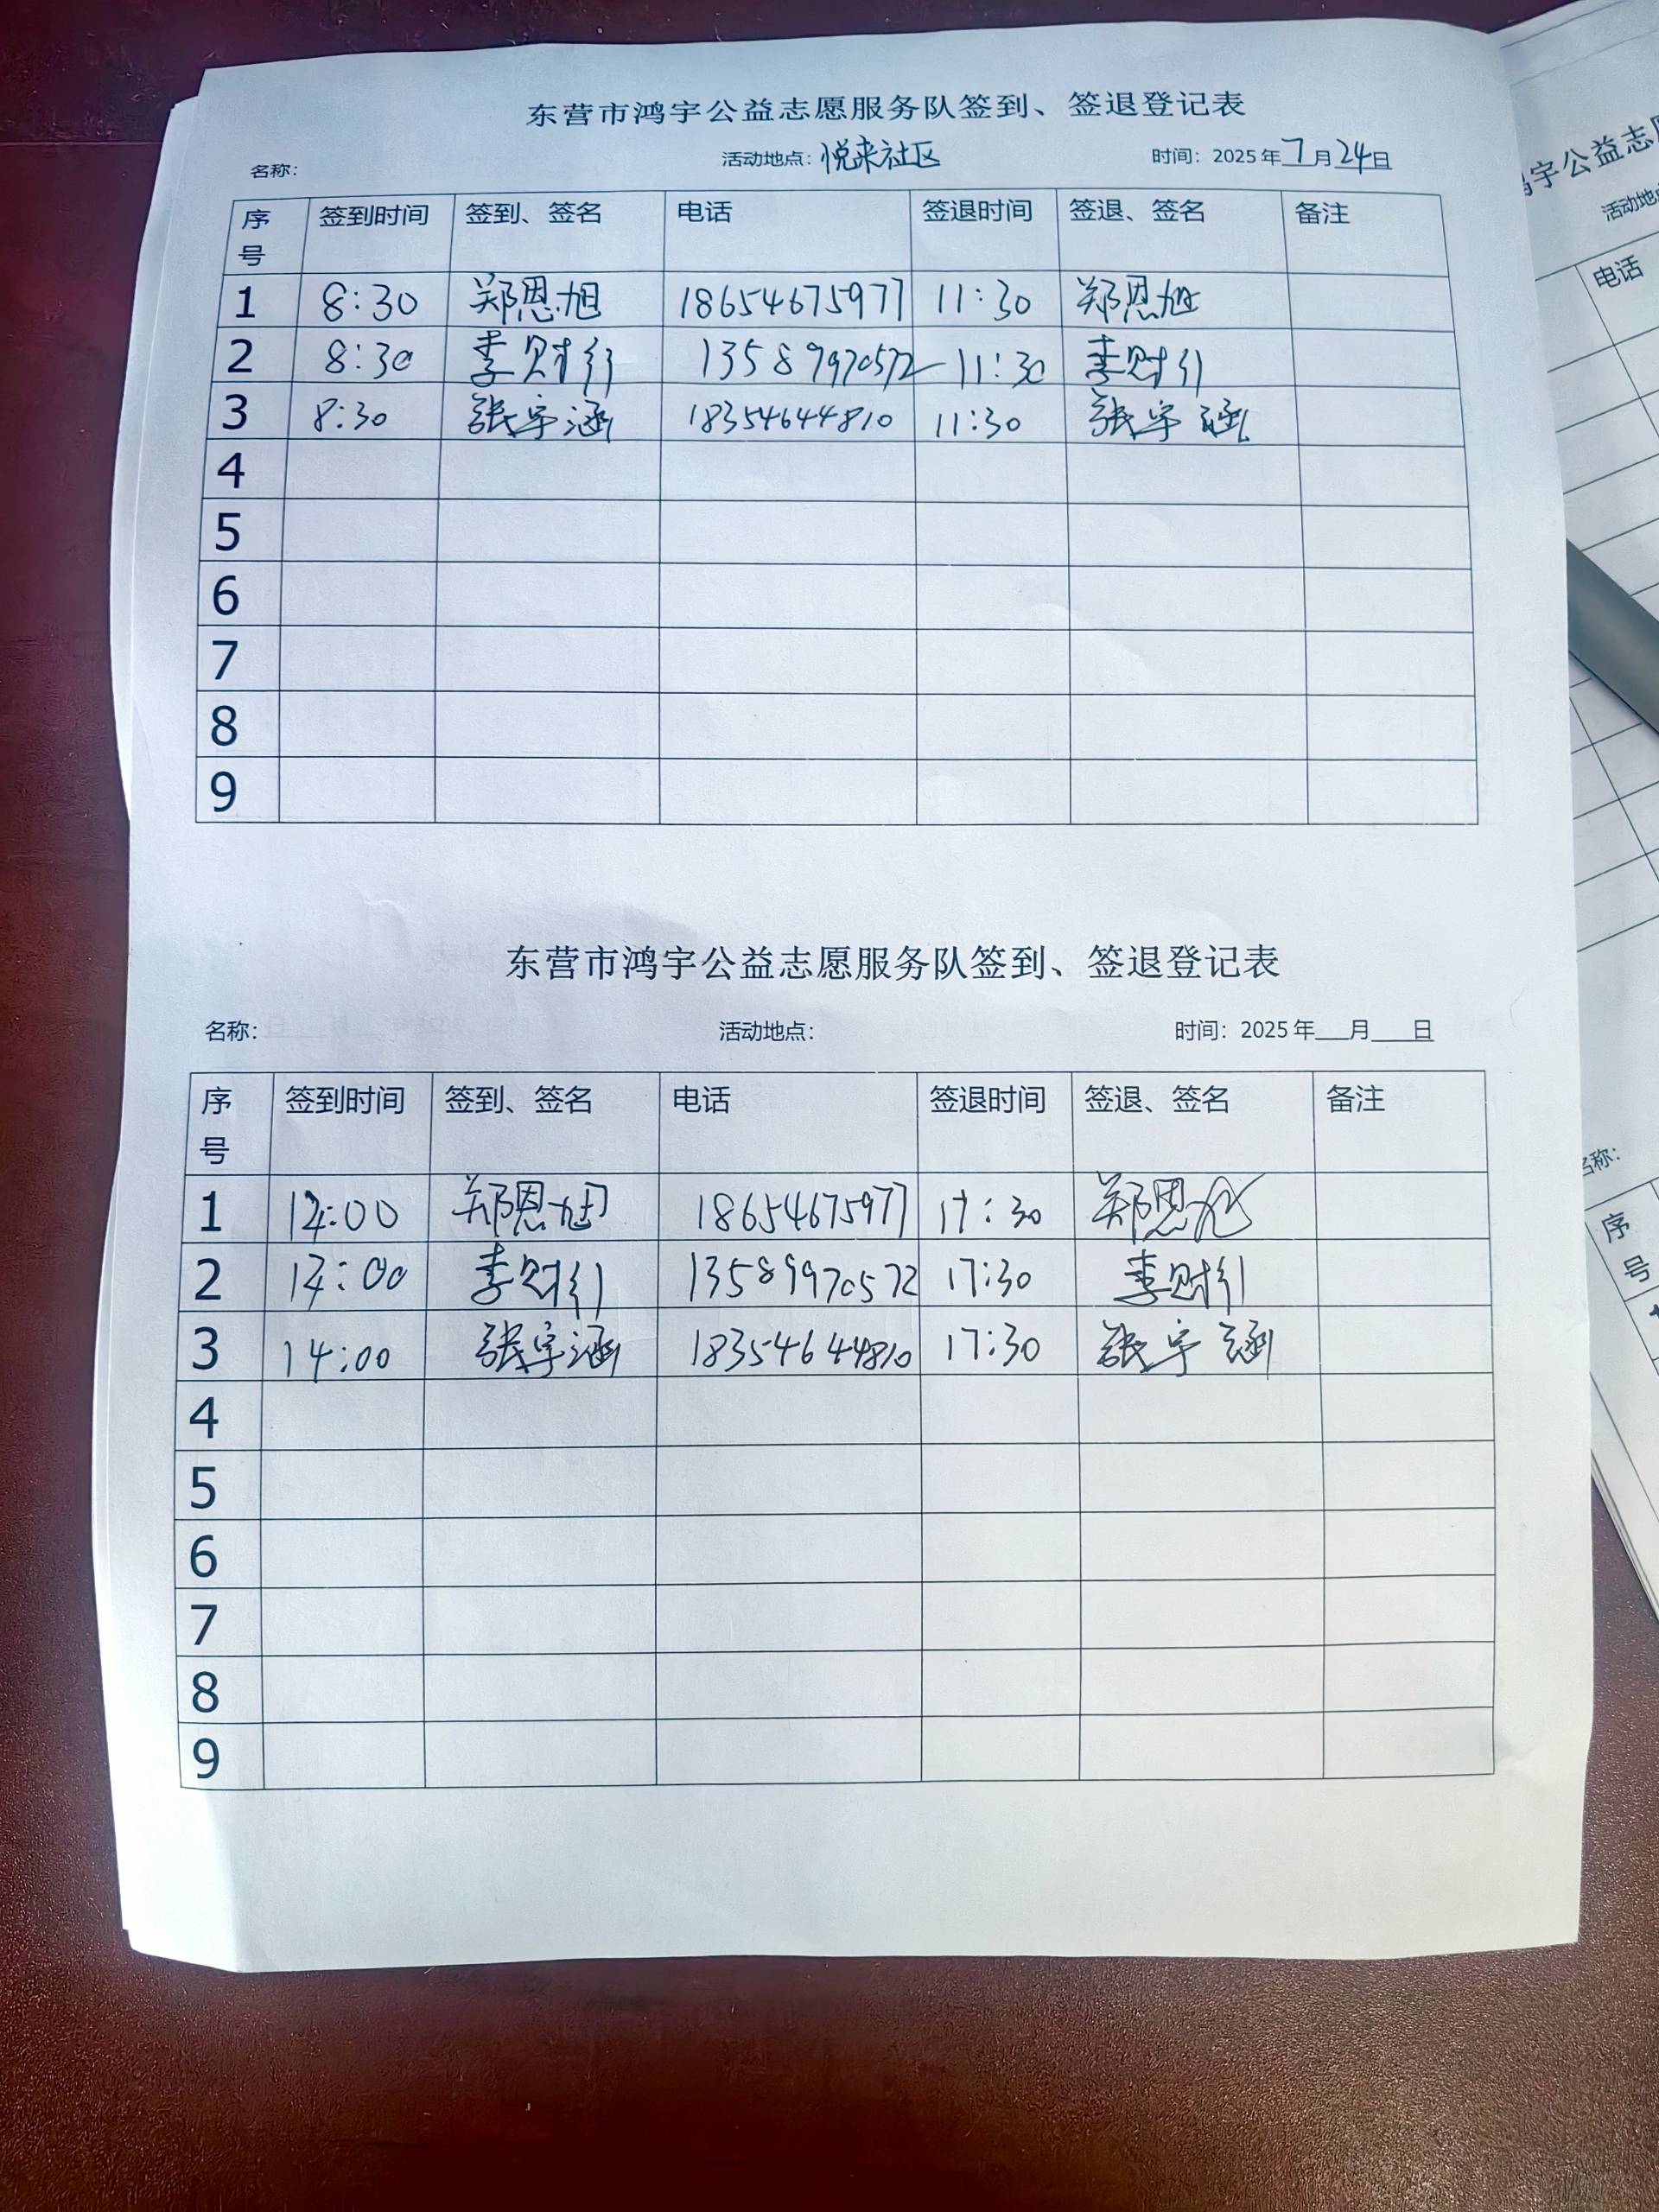 东营市鸿宇公益志愿服务队签到、签退登记表
名称： 活动地点：悦来社区 时间：2025年7月24日
序号 签到时间 签到、签名 电话 签退时间 签退、签名 备注
1 8:30 郑恩旭 18654675977 11:30 郑恩旭
2 8:30 李财行 13589970572 11:30 李财行
3 8:30 张宇涵 18354644810 11:30 张宇涵
4
5
6
7
8
9
东营市鸿宇公益志愿服务队签到、签退登记表
名称： 活动地点： 时间：2025年___月___日
序号 签到时间 签到、签名 电话 签退时间 签退、签名 备注
1 14:00 郑恩旭 18654675977 17:30 郑恩旭
2 14:00 李财行 13589970572 17:30 李财行
3 14:00 张宇涵 18354644810 17:30 张宇涵
4
5
6
7
8
9
鸿宇公益志
活动地
电话
名称：
序号